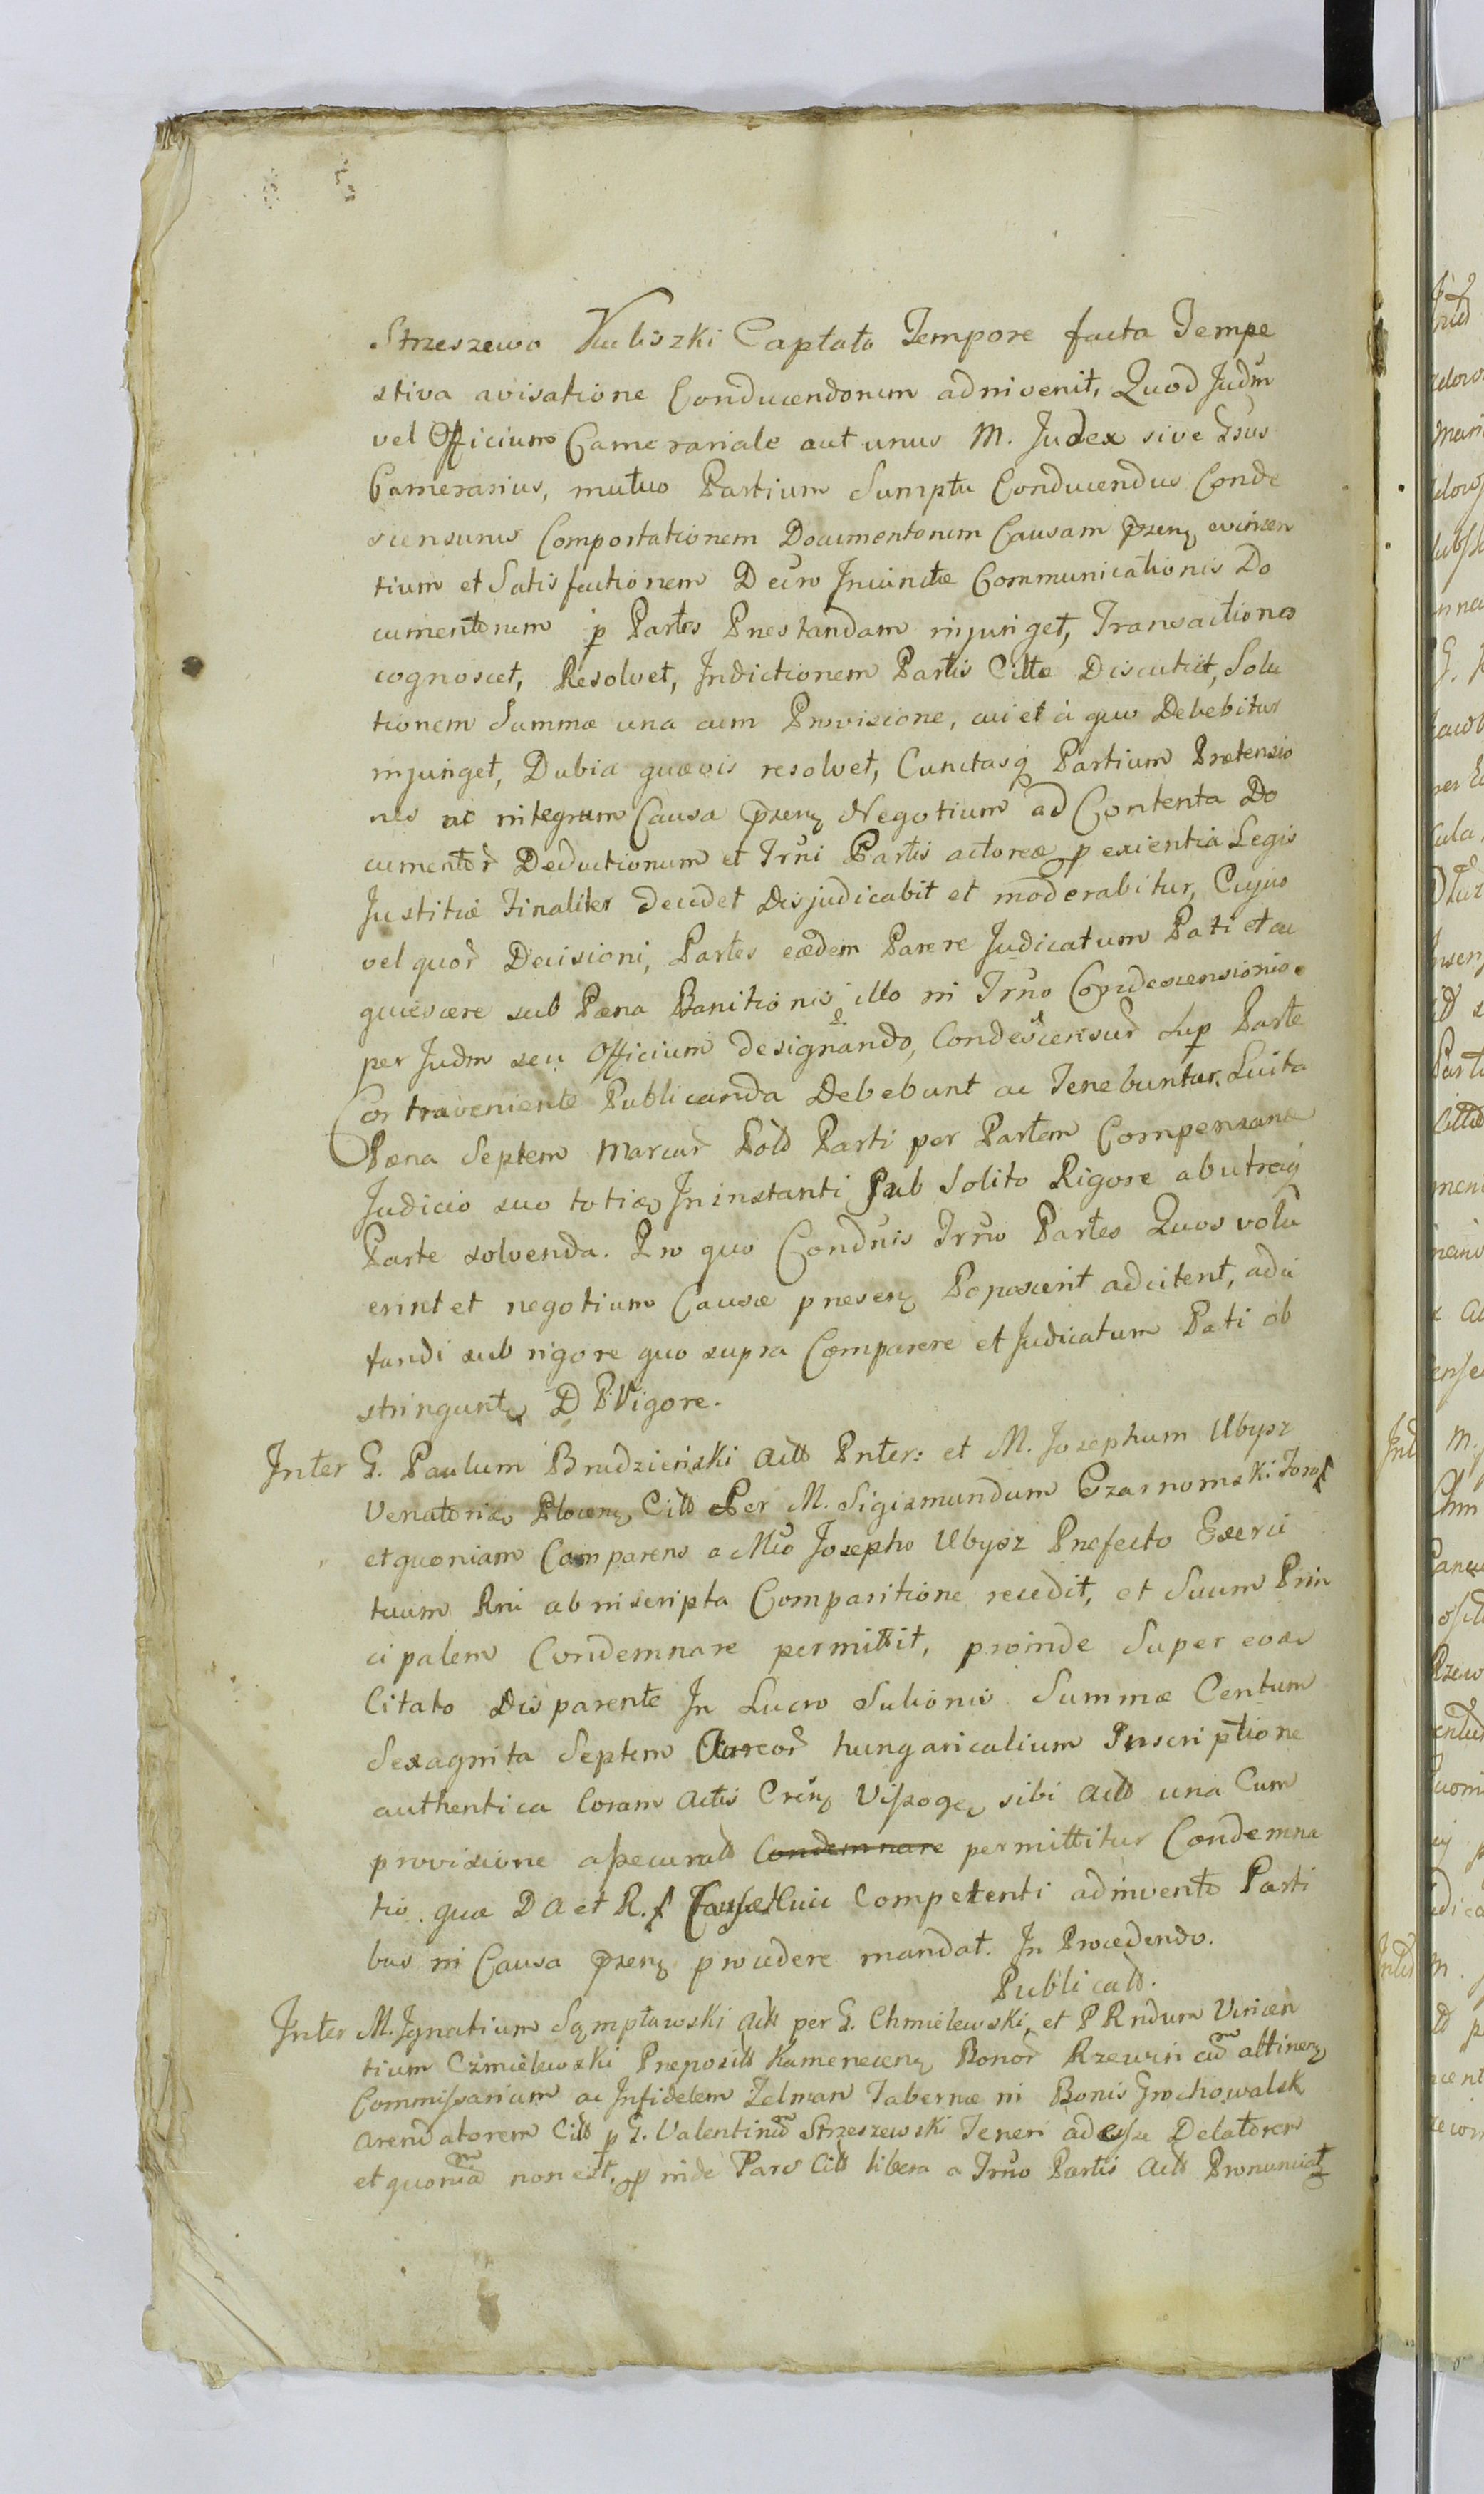 Strzeszewo Kuliszki Captato Tempore facta Tempe
stiva avisatione Conducendorum adnivenit, Quod Judm
vel Officium Camerariale aut unus M. Judex sive Gsus
Camerarius, mutuo Partium Sumptu Conducendus Conde
scensurus Comportationem Documentorum Causam przens evinsen
tium et Satisfactionem Decro Iniunctæ Communicationis Do
cumentorum p Partes Prestandam injunget, Transactiones
cognoscet, Resolvet, Indictionem Partis Cittæ Discutiet, Solu
tionem Summæ una cum Provisione, cui et a quo Debebitur
injunget, Dubia quævis resolvet, Cunctasq Partium Prætensio
nes ac integrum Causa przens Negotium ad Contenta Do
cumentor Deductionum et Trni Partis actoreæ p exientia Legis
Justitiæ Finaliter decidet Disjudicabit et moderabitur, Cujus
vel quor Decisioni, Partes eædem Parere Judicatum Pati et ac
quiescere sub Pæna Banitionis illo in Trno Condescensionis
per Judm seu Officium designando, Condescensur Sup Parte
Contraveniente Publicanda Debebunt ac Tenebuntur. Luita
Pæna Septem Marcar Pold Parti per Partem Compensanda
Judicio suo toties In instanti Sub Solito Rigore ab utraq
Parte solvenda. Pro quo Condnis Trno Partes Quos volu
erint et negotium Causæ presens Poposcerit adcitent, adci
tandi sub rigore quo supra Comparere et Judicatum Pati ob
stringuntur D P Vigore.
Inter G. Paulum Brudzieński Actt Prter: et M. Josephum Ubysz
Venatorices Plocens Citt Per M. Sigismundum Czarnomski
et quoniam Comparens a Mco Josepho Ubysz Prefecto Exerci
tuum Rni ab inscripta Comparitione recedit, et Suum Prin
cipalem Condemnare permittit, proinde Super
Citato Disparente In Lucro Sulionis Summæ Centum
Sexaginta Septem Aureor hungaricalium Inscriptione
authentica Coram Actis Crens Vissoges sibi Actt una Cum
provisione assecuratt Condemnare permittitur Condemna
tio. quæ D A et R. Competenti adinvento Parti
bus in Causa przens procedere mandat. In Procedendo.
Publicatt.
Inter M. Ignatium Sąmpławski Actt per G. Chmielewski, et P Rndum Vincen
tium Czmielewski Preposilt Kamenecens Bonor Rzewin cum attinens
Commissarium ac Infidelem Zelman Tabernæ in Bonis Grochowalsk
Arendatorem Citt p G. Valentinum Strzeszewski Teneri adesse Delatorem
et quoniam non est, p inde Pars Citt libera a Trno Partis Actt Pronunciat